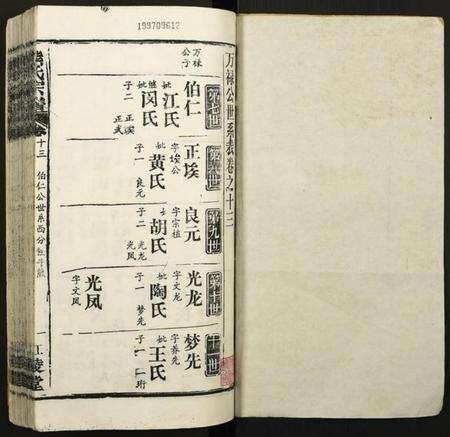 199709612
万禄公世系表卷之十三
第七世
万禄公子
伯仁
妣江氏
继闵氏
子二
正溪
正武
第八世
正埃
字埃公
妣黄氏
子一
良元
第九世
良元
字宗植
妣胡氏
子二
光龙
光凤
第十世
光龙
字文龙
妣陶氏
子一
梦先
光凤
字文凤
十一世
梦先
字养先
妣王氏
子一
珩
氏宗谱
卷十三
伯仁公世系西分
一
江陵堂